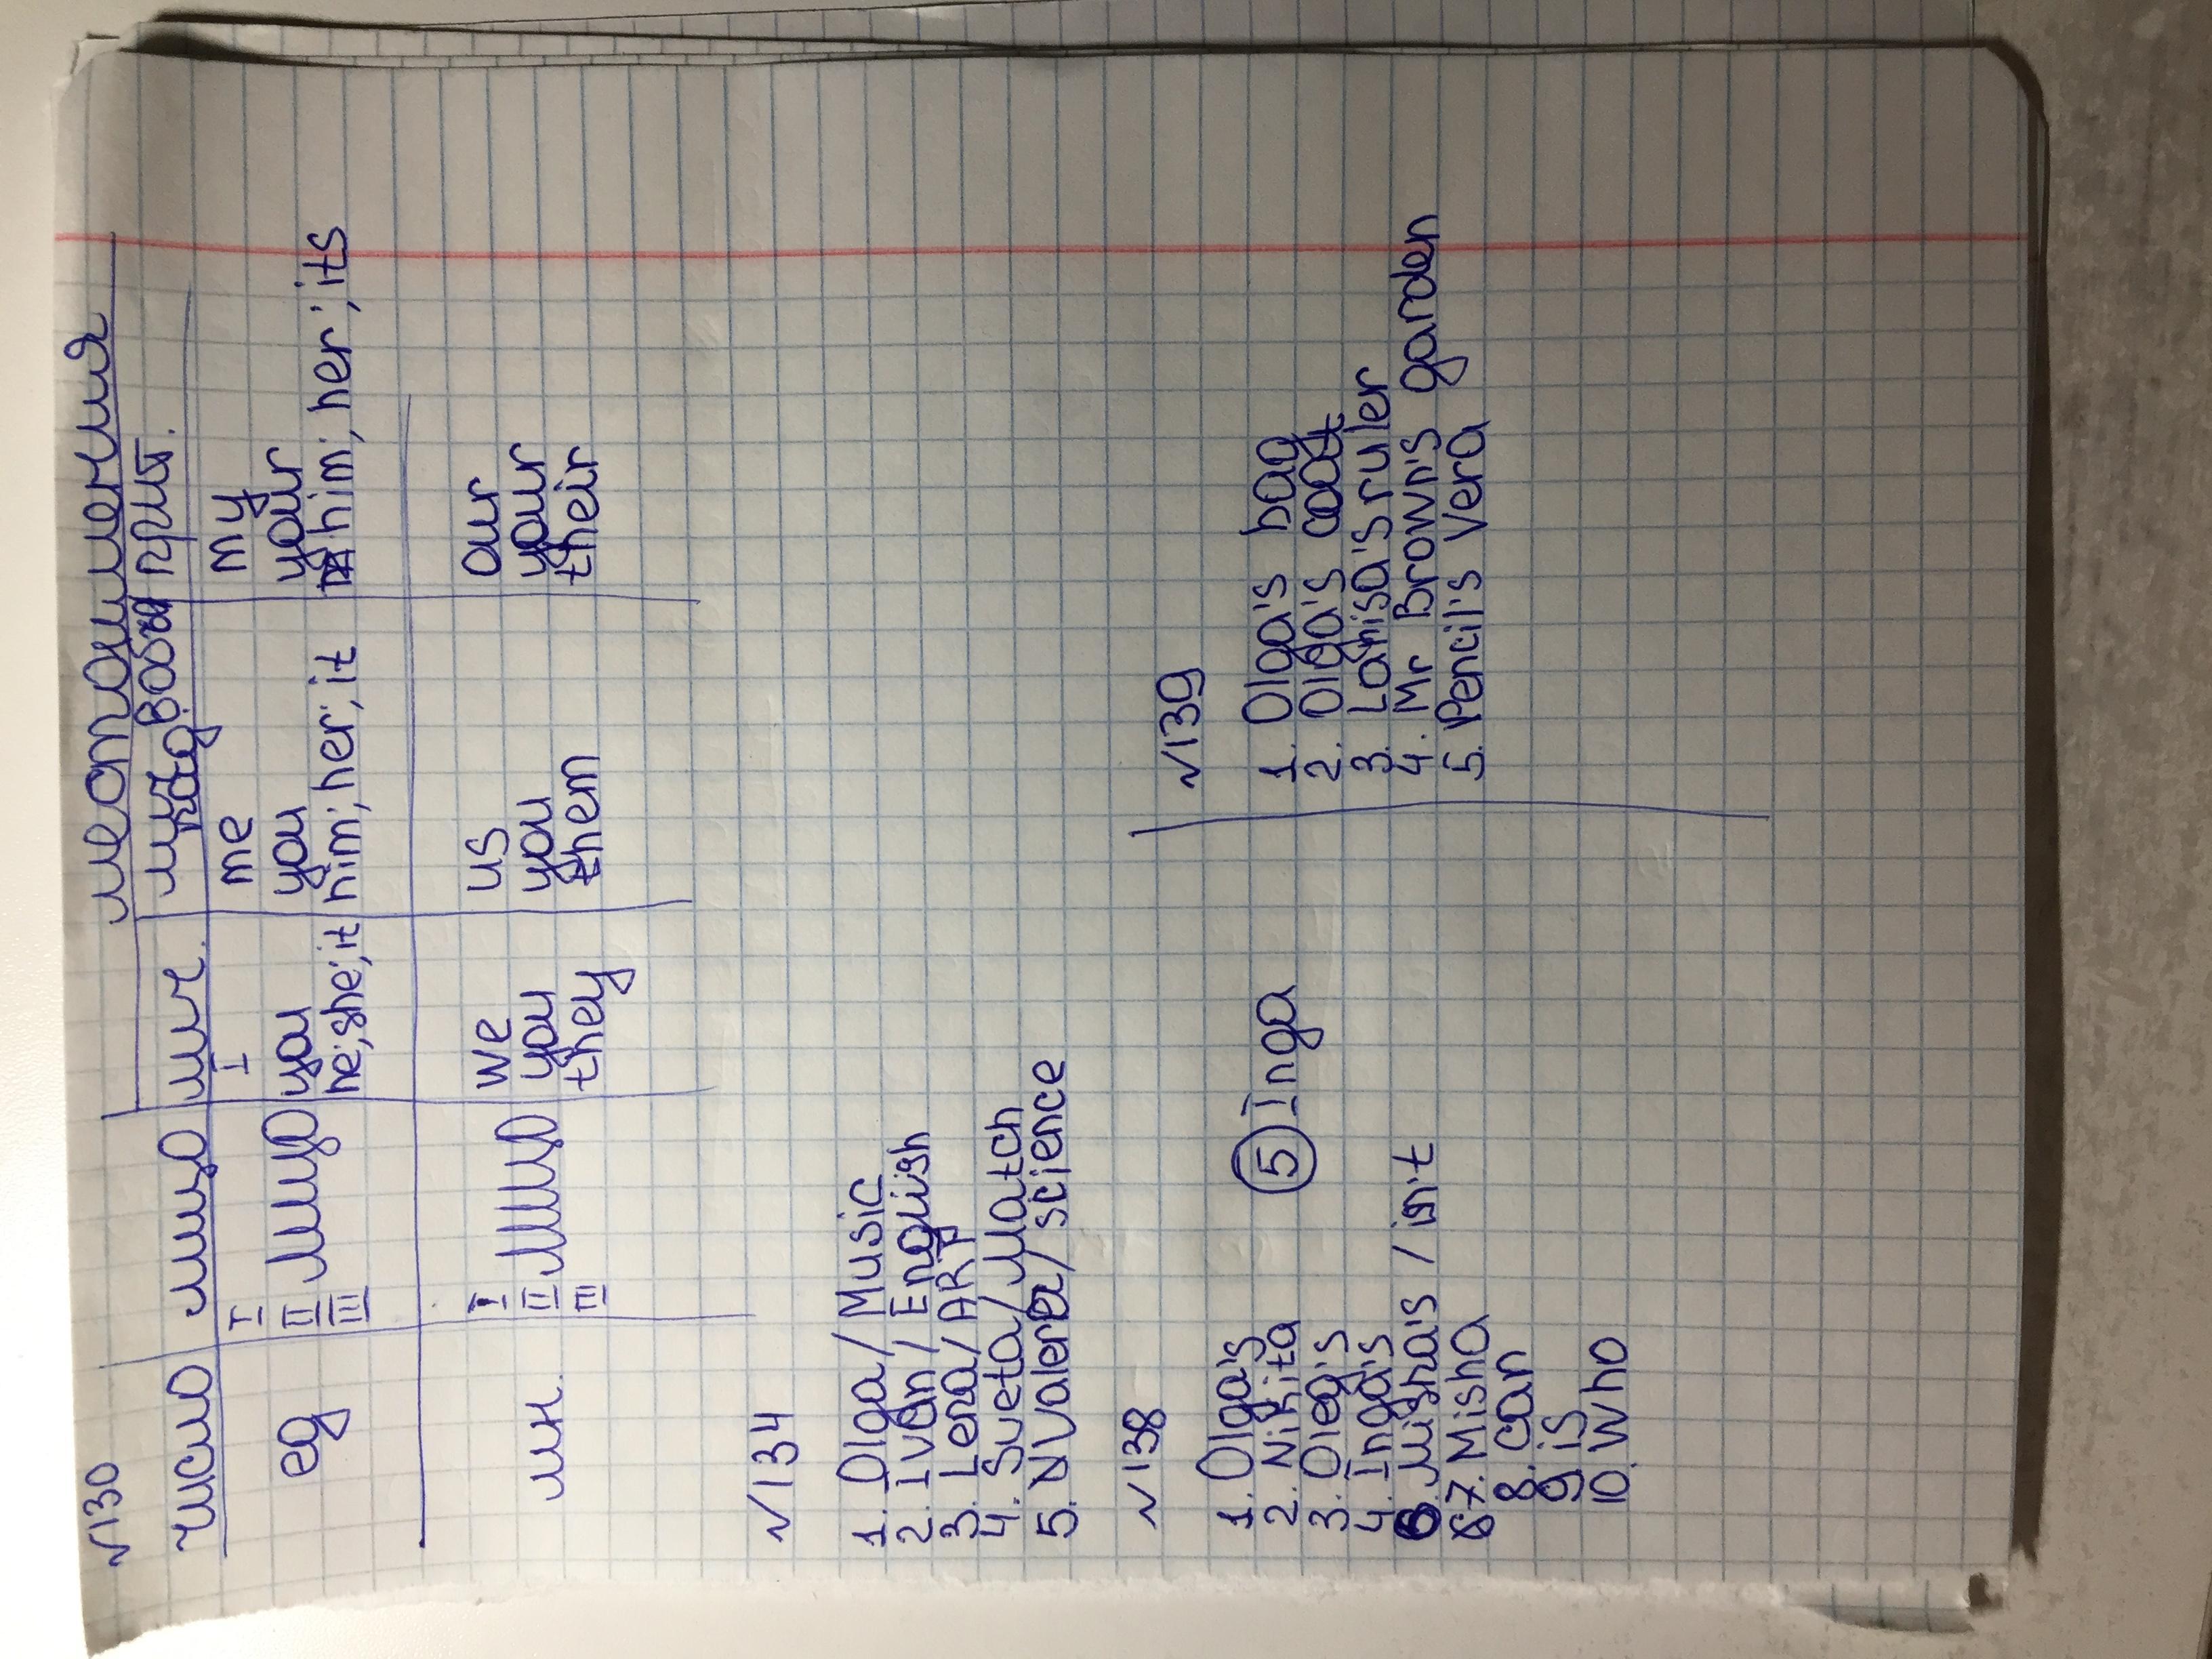 √130
местоимения
число лицо лич. притяг.
ед I I me my
II лицо you you your
III he; she; it him; her; it him; her; its
мн. I we us our
II лицо you you your
III they them their
√134
1. Olga / Music
2. Ivan / English
3. Lena / ART
4. Sveta / Match
5. Valera / science
√138
1. Olga's
2. Nikita
3. Oleg's
4. Inga's
⑤ Inga
6. Misha's / isn't
7. Misha
8. can
9 is
10. Who
√139
1. Olga's bag
2. Olga's coat
3. Larisa's ruler
4. Mr Brown's garden
5. Pencil's Vera